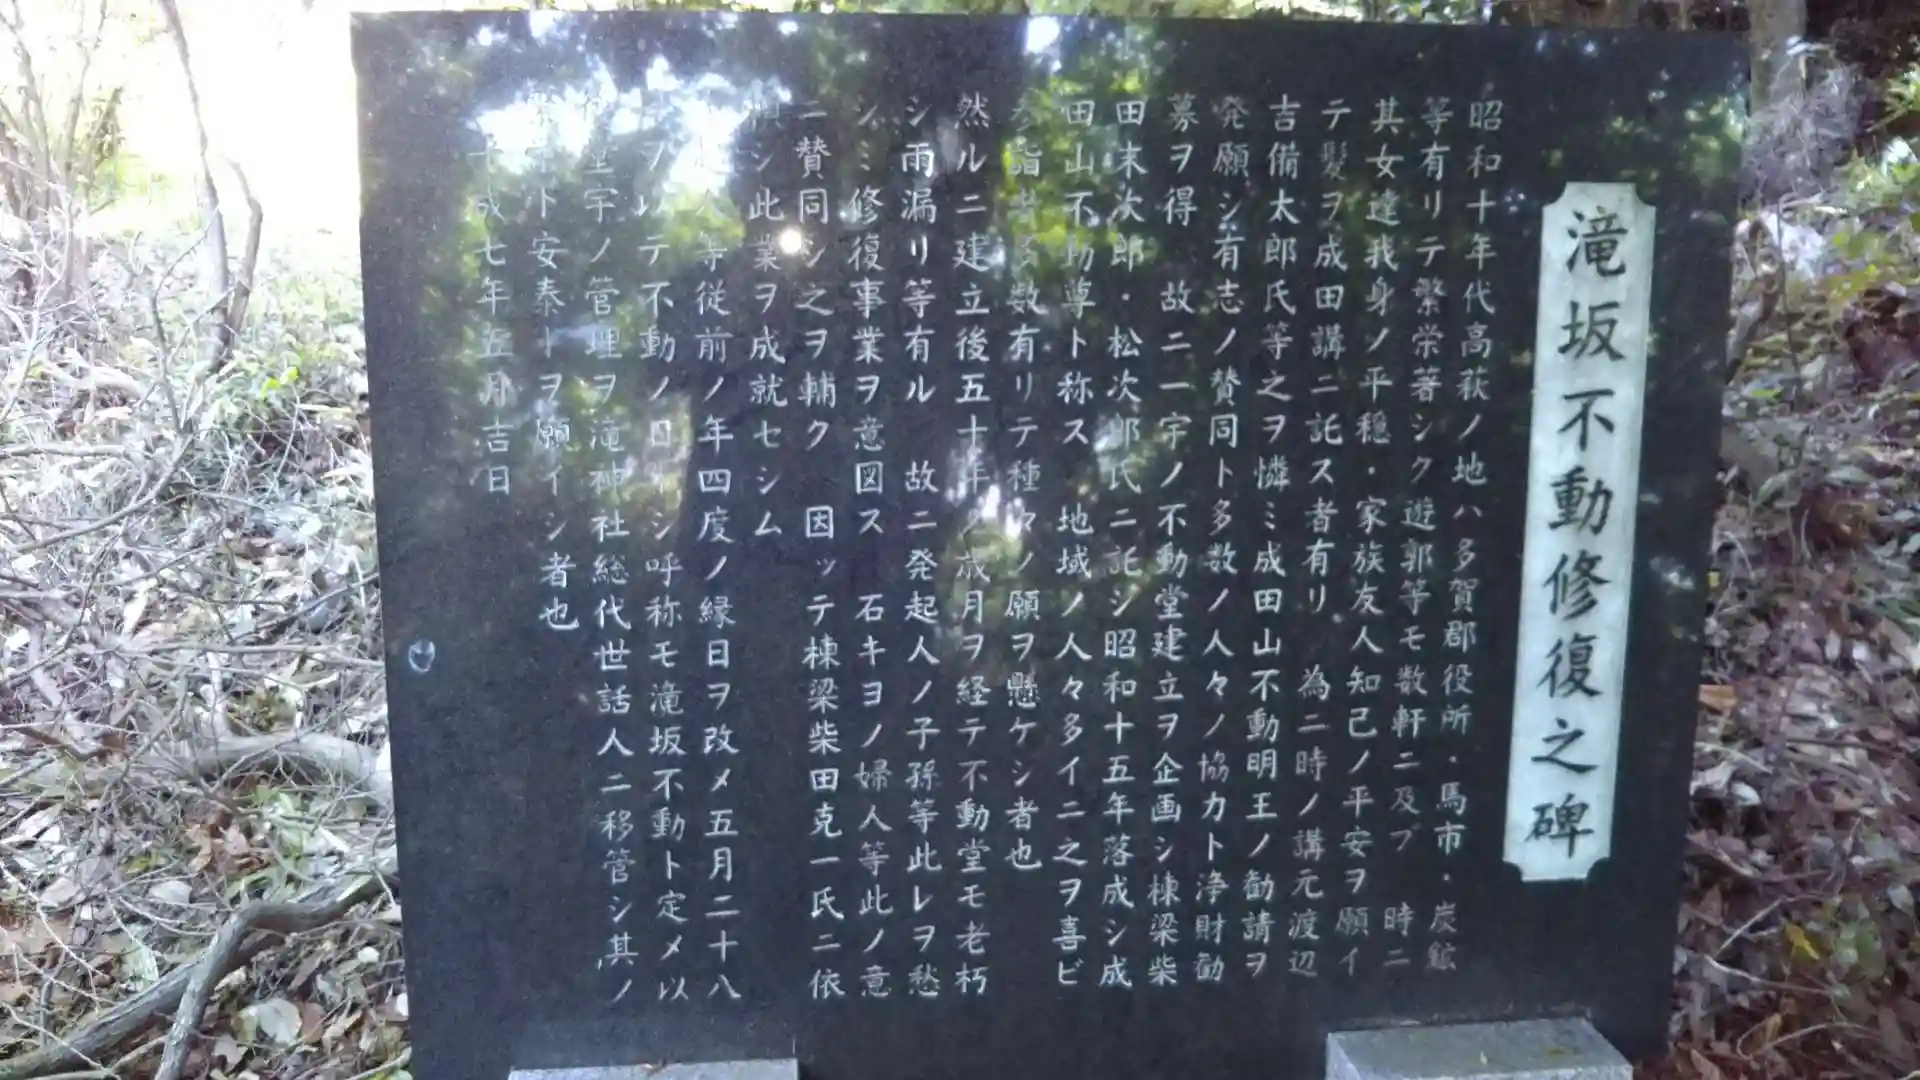 滝坂不動修復之碑
昭和十年代高萩ノ地ハ多賀郡役所・馬市・炭鉱
等有リテ繁栄著シク遊郭等モ数軒ニ及ブ 時ニ
其女達我身ノ平穏・家族友人知己ノ平安ヲ願イ
テ髪ヲ成田講ニ託ス者有リ 為ニ時ノ講元渡辺
吉備太郎氏等之ヲ憐ミ成田山不動明王ノ勧請ヲ
発願シ有志ノ賛同ト多数ノ人々ノ協力ト浄財勧
募ヲ得 故ニ一宇ノ不動堂建立ヲ企画シ棟梁柴
田末次郎・松次郎氏ニ託シ昭和十五年落成シ成
田山不動尊ト称ス 地域ノ人々多イニ之ヲ喜ビ
参詣者多数有リテ種々ノ願ヲ懸ケシ者也
然ルニ建立後五十年ノ歳月ヲ経テ不動堂モ老朽
シ雨漏リ等有ル 故ニ発起人ノ子孫等此レヲ愁
シミ修復事業ヲ意図ス 石キヨノ婦人等此ノ意
ニ賛同シ之ヲ輔ク 因ッテ棟梁柴田克一氏ニ依
頼シ此業ヲ成就セシム
人等従前ノ年四度ノ縁日ヲ改メ五月二十八
ヲ以テ不動ノ日トシ呼称モ滝坂不動ト定メ以
堂宇ノ管理ヲ滝神社総代世話人ニ移管シ其ノ
ト安泰トヲ願イシ者也
平成七年五月吉日